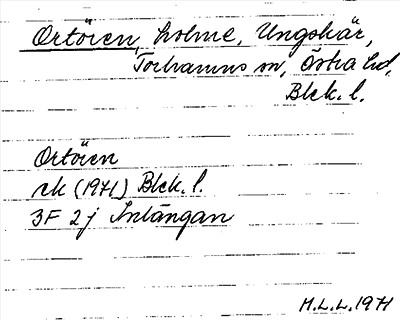 Ortören, holme, Ungskär,
Torhamns sn, Östra hd,
Blek. l.
Ortören
ek (1971) Blek. l.
3F 2j Inlängan
H.L.L. 1971